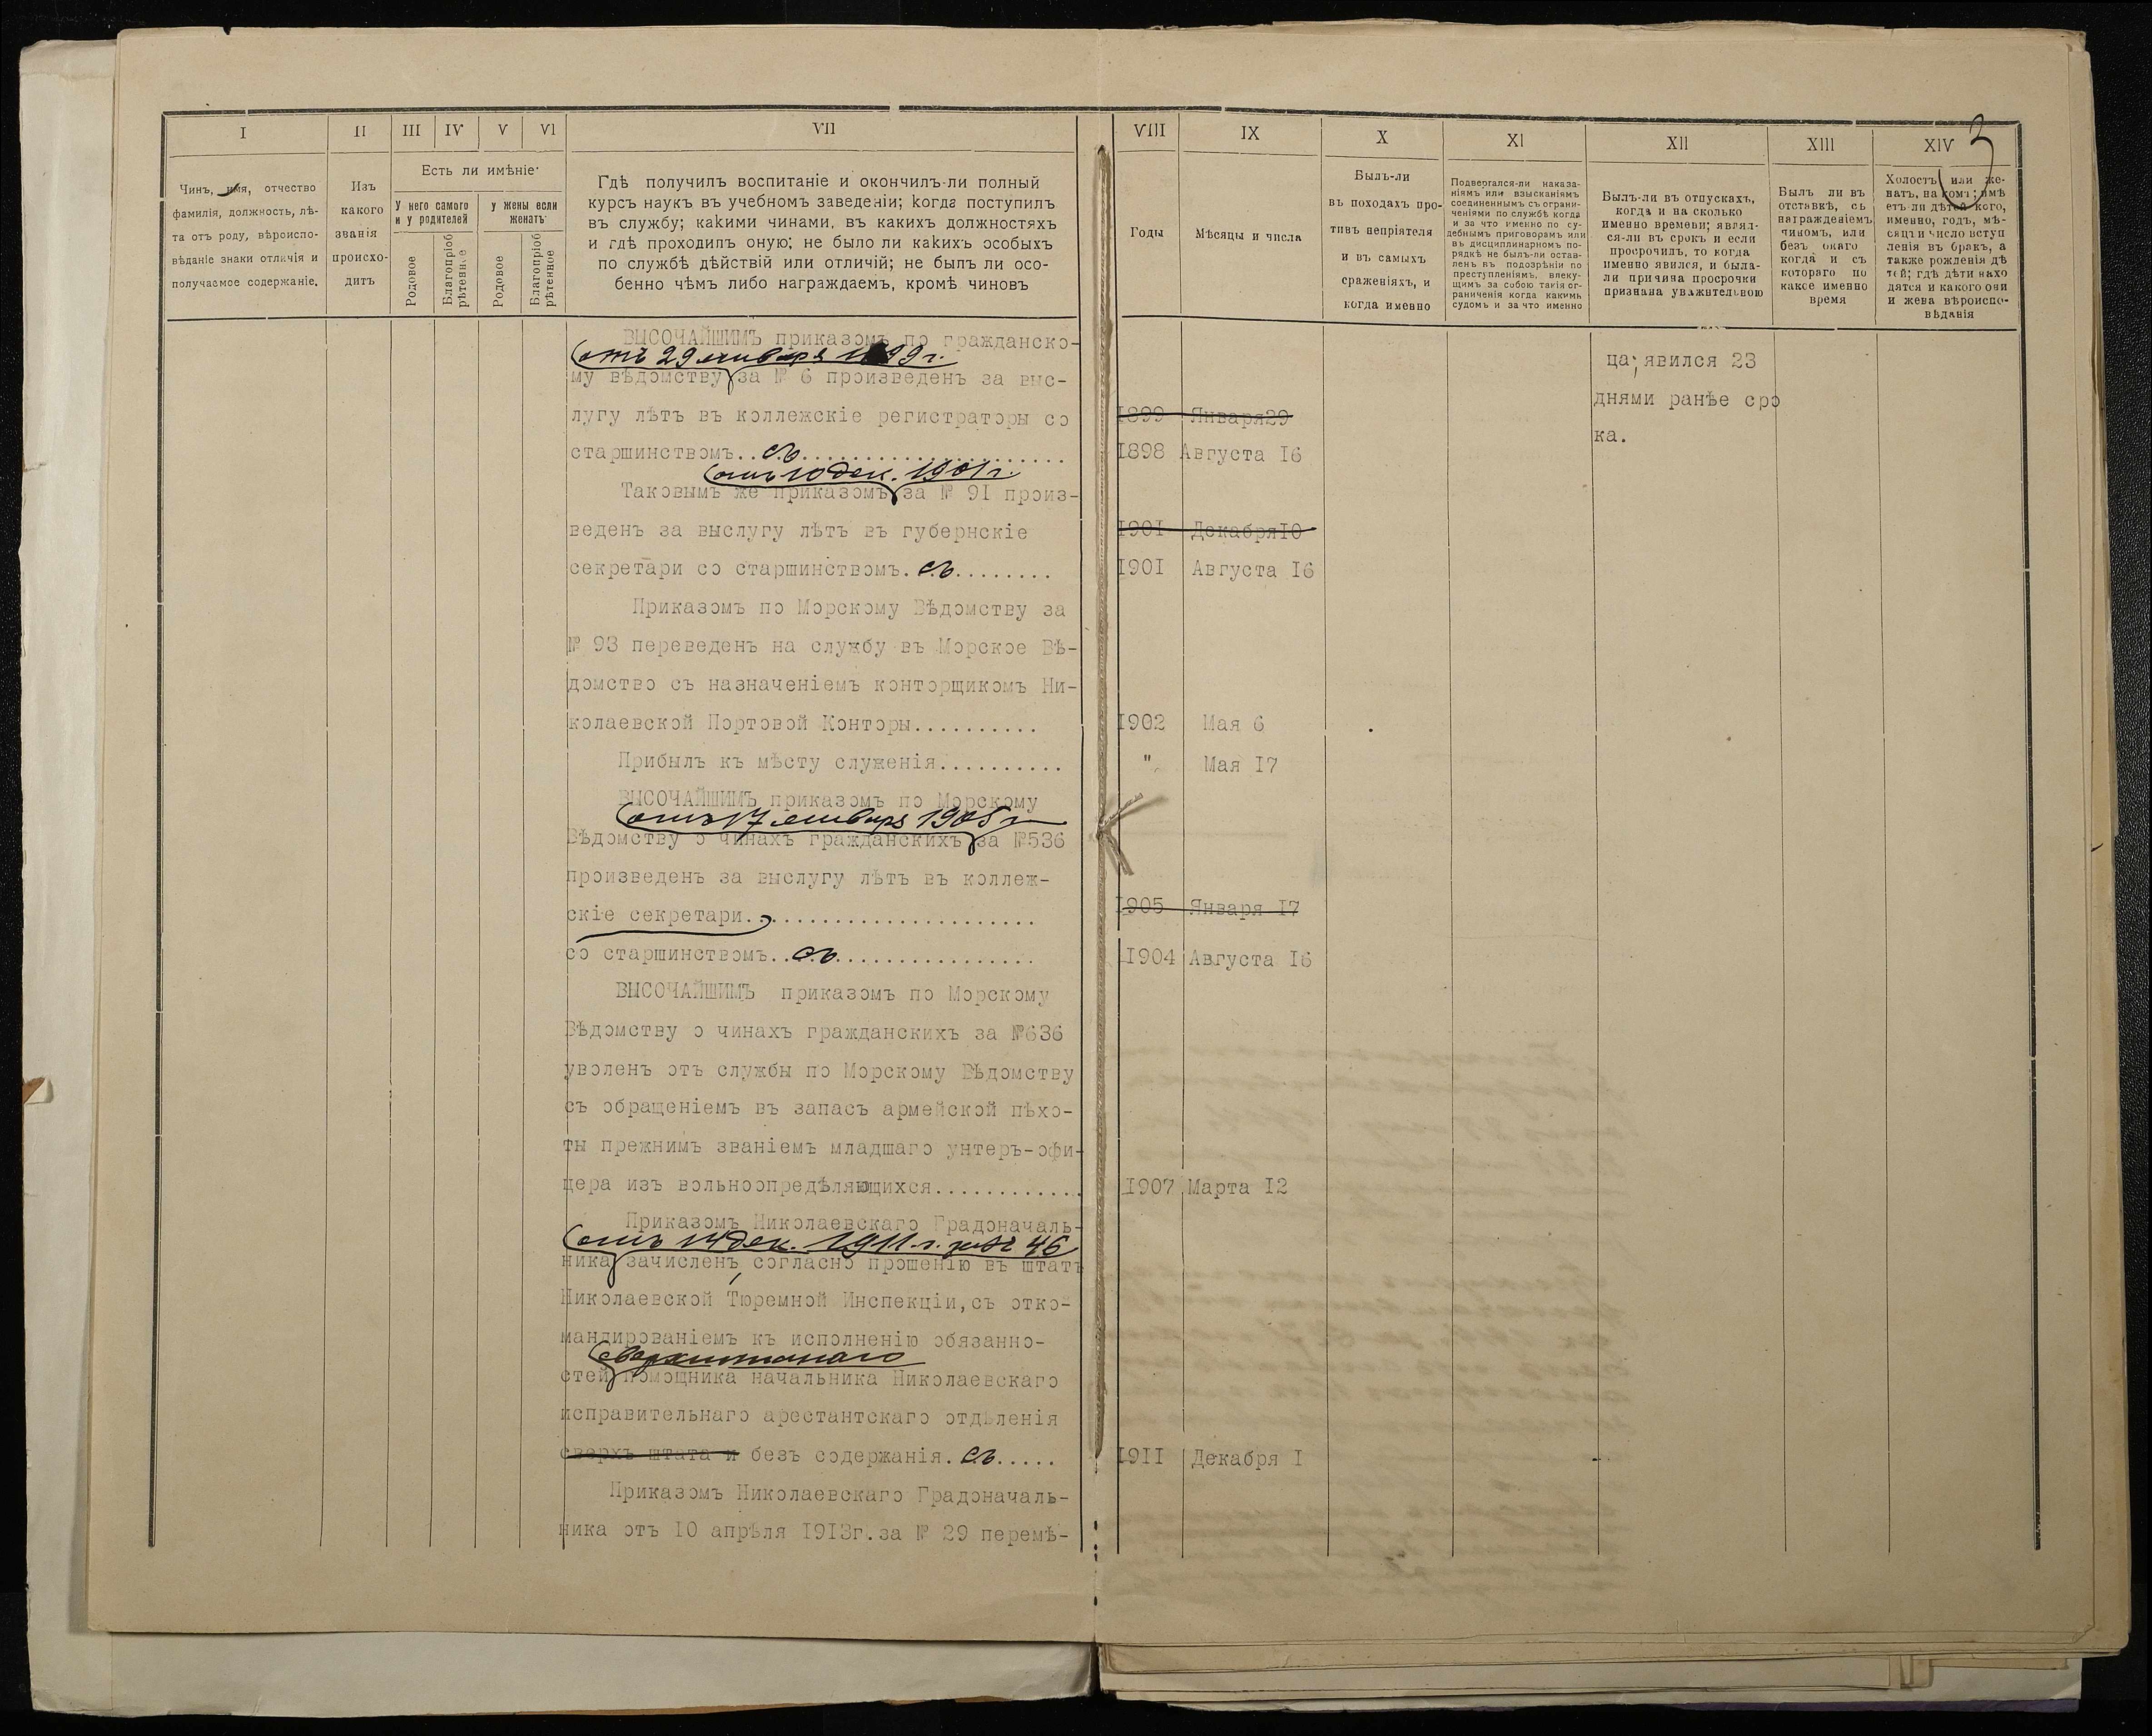 3
I II III IV V VI VII VIII IX X XI XII XIII XIV
Чинъ, имя, отчество
фамилія, должность, лѣ-
та отъ роду, вѣроиспо-
вѣданіе знаки отличія и
получаемое содержаніе.
Изъ
какого
званія
происхо-
дитъ
Есть ли имѣніе
У него самого
и у родителей
у жены если
женатъ
Родовое
Благопріоб
рѣтенное
Родовое
Благопріоб
рѣтенное
Гдѣ получилъ воспитаніе и окончилъ-ли полный
курсъ наукъ въ учебномъ заведеніи; когда поступилъ
въ службу; какими чинами, въ какихъ должностяхъ
и гдѣ проходилъ оную; не было ли какихъ особыхъ
по службѣ дѣйствій или отличій; не былъ ли осо-
бенно чѣмъ либо награждаемъ, кромѣ чиновъ
Годы
Мѣсяцы и числа
Былъ-ли
въ походахъ про-
тивъ непріятеля
и въ самыхъ
сраженіяхъ, и
когда именно
Подвергался-ли наказа-
ніямъ или взысканіямъ
соединеннымъ съ ограни-
ченіями по службѣ когда
и за что именно по су-
дебнымъ приговорамъ или
въ дисциплинарномъ по-
рядкѣ не былъ-ли остав-
ленъ въ подозрѣніи по
преступленіямъ, влеку-
щимъ за собою такія ог-
раниченія когда какимъ
судомъ и за что именно
Былъ-ли въ отпускахъ,
когда и на сколько
именно времени; являл-
ся-ли въ срокъ и если
просрочилъ, то когда
именно явился, и была-
ли причина просрочки
признана уважительною
Былъ ли въ
отставкѣ, съ
награжденіемъ
чиномъ, или
безъ онаго
когда и съ
котораго по
какое именно
время
Холостъ или же-
натъ, на комъ; имѣ
етъ-ли дѣтей кого,
именно, годъ, мѣ-
сяцъ и число вступ
ленія въ бракъ, а
также рожденія дѣ
тей; гдѣ дѣти нахо
дятся и какого они
и жена вѣроиспо-
вѣданія
ВЫСОЧАЙШИМЪ приказомъ по гражданско-
отъ 29 января 1899 г.
му вѣдомству за № 6 произведенъ за выс-
лугу лѣтъ въ коллежскіе регистраторы со
1899 Января29
старшинствомъ..съ.....................
1898 Августа 16
отъ 10 дек. 1901 г.
Таковымъ же приказомъ за № 91 произ-
веденъ за выслугу лѣтъ въ губернскіе
1901 Декабря10
секретари со старшинствомъ.съ........
1901 Августа 16
Приказомъ по Морскому Вѣдомству за
№ 93 переведенъ на службу въ Морское Вѣ-
домство съ назначеніемъ конторщикомъ Ни-
колаевской Портовой Конторы..........
1902 Мая 6
Прибылъ къ мѣсту служенія..........
" Мая 17
ВЫСОЧАЙШИМЪ приказомъ по Морскому
отъ 17 января 1905 г
Вѣдомству о чинахъ гражданскихъ за №536
произведенъ за выслугу лѣтъ въ коллеж-
скіе секретари.......................
1905 Января 17
со старшинствомъ..съ................
1904 Августа 16
ВЫСОЧАЙШИМЪ приказомъ по Морскому
Вѣдомству о чинахъ гражданскихъ за №636
уволенъ отъ службы по Морскому Вѣдомству
съ обращеніемъ въ запасъ армейской пѣхо-
ты прежнимъ званіемъ младшаго унтеръ-офи-
цера изъ вольноопредѣляющихся............
1907 Марта 12
Приказомъ Николаевскаго Градоначаль-
отъ 14 дек. 1911 г. за № 46
ника зачисленъ, согласно прошенію въ штатъ
Николаевской Тюремной Инспекціи,съ отко-
мандированіемъ къ исполненію обязанно-
сверхштатнаго
стей помощника начальника Николаевскаго
исправительнаго арестантскаго отдѣленія
сверхъ штата и безъ содержанія.съ.....
1911 Декабря 1
Приказомъ Николаевскаго Градоначаль-
ника отъ 10 апрѣля 1913г.за № 29 перемѣ-
ца; явился 23
днями ранѣе сро
ка.